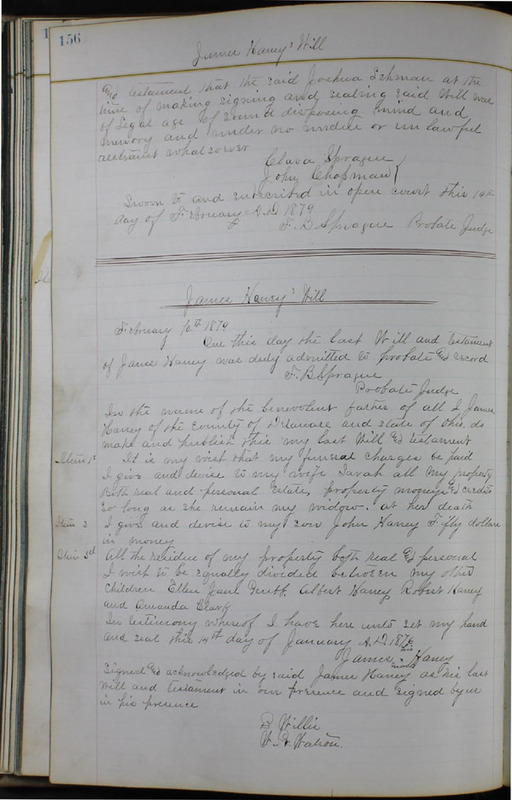 156
James Haney's Will
and testament that the said Joshua Lehman at the
time of making signing and sealing said Will was
of legal age of sound disposing mind and
memory and under no undue or unlawful
restraint whatsoever
Clara Sprague
John Chapman
Sworn to and subscribed in open court this
day of February A.D. 1879
F. B. Sprague Probate Judge
James Haney's Will
February 1879
One this day the last Will and testament
of James Haney was duly admitted to probate & record
F. B. Sprague
Probate Judge
In the name of the benevolent father of all I James
Haney of the County of Delaware and state of Ohio do
make and publish this my last Will & testament
Item 1st It is my wish that my funeral charges be paid
I give and devise to my wife Sarah all my property
both real and personal Estate, property moneys & credits
so long as she remain my widow. at her death
Item 2 I give and devise to my son John Haney Fifty dollars
in money
Item 3d All the residue of my property both real & personal
I wish to be equally divided between my other
children Ellen Albert Haney Robert Haney
and Amanda Clark
In testimony whereof I have here unto set my hand
and seal this 14th day of January A.D.
James Haney
Signed & acknowledged by said James Haney as his last
will and testament in our presence and signed by us
in his presence
B Willis
Watson